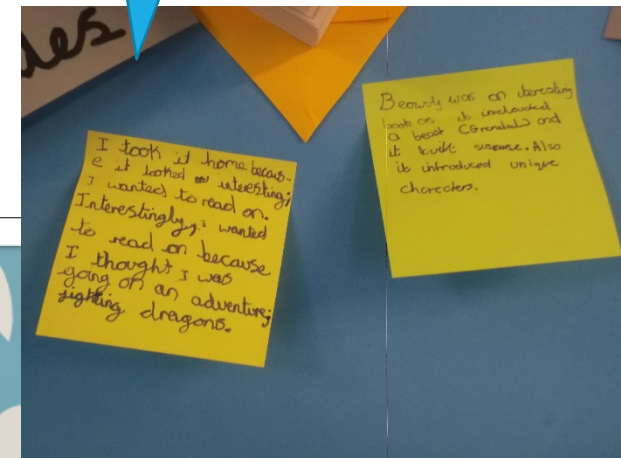 des
I took it home becaus-
e it looked interesting;
I wanted to read on.
Interestingly, I wanted
to read on because
I thought I was
going on an adventure;
fighting dragons.
Beowulf was an iteresting
book as it included
a beast (Grendal) and
it built suspense. Also
it introduced unique
charecters.